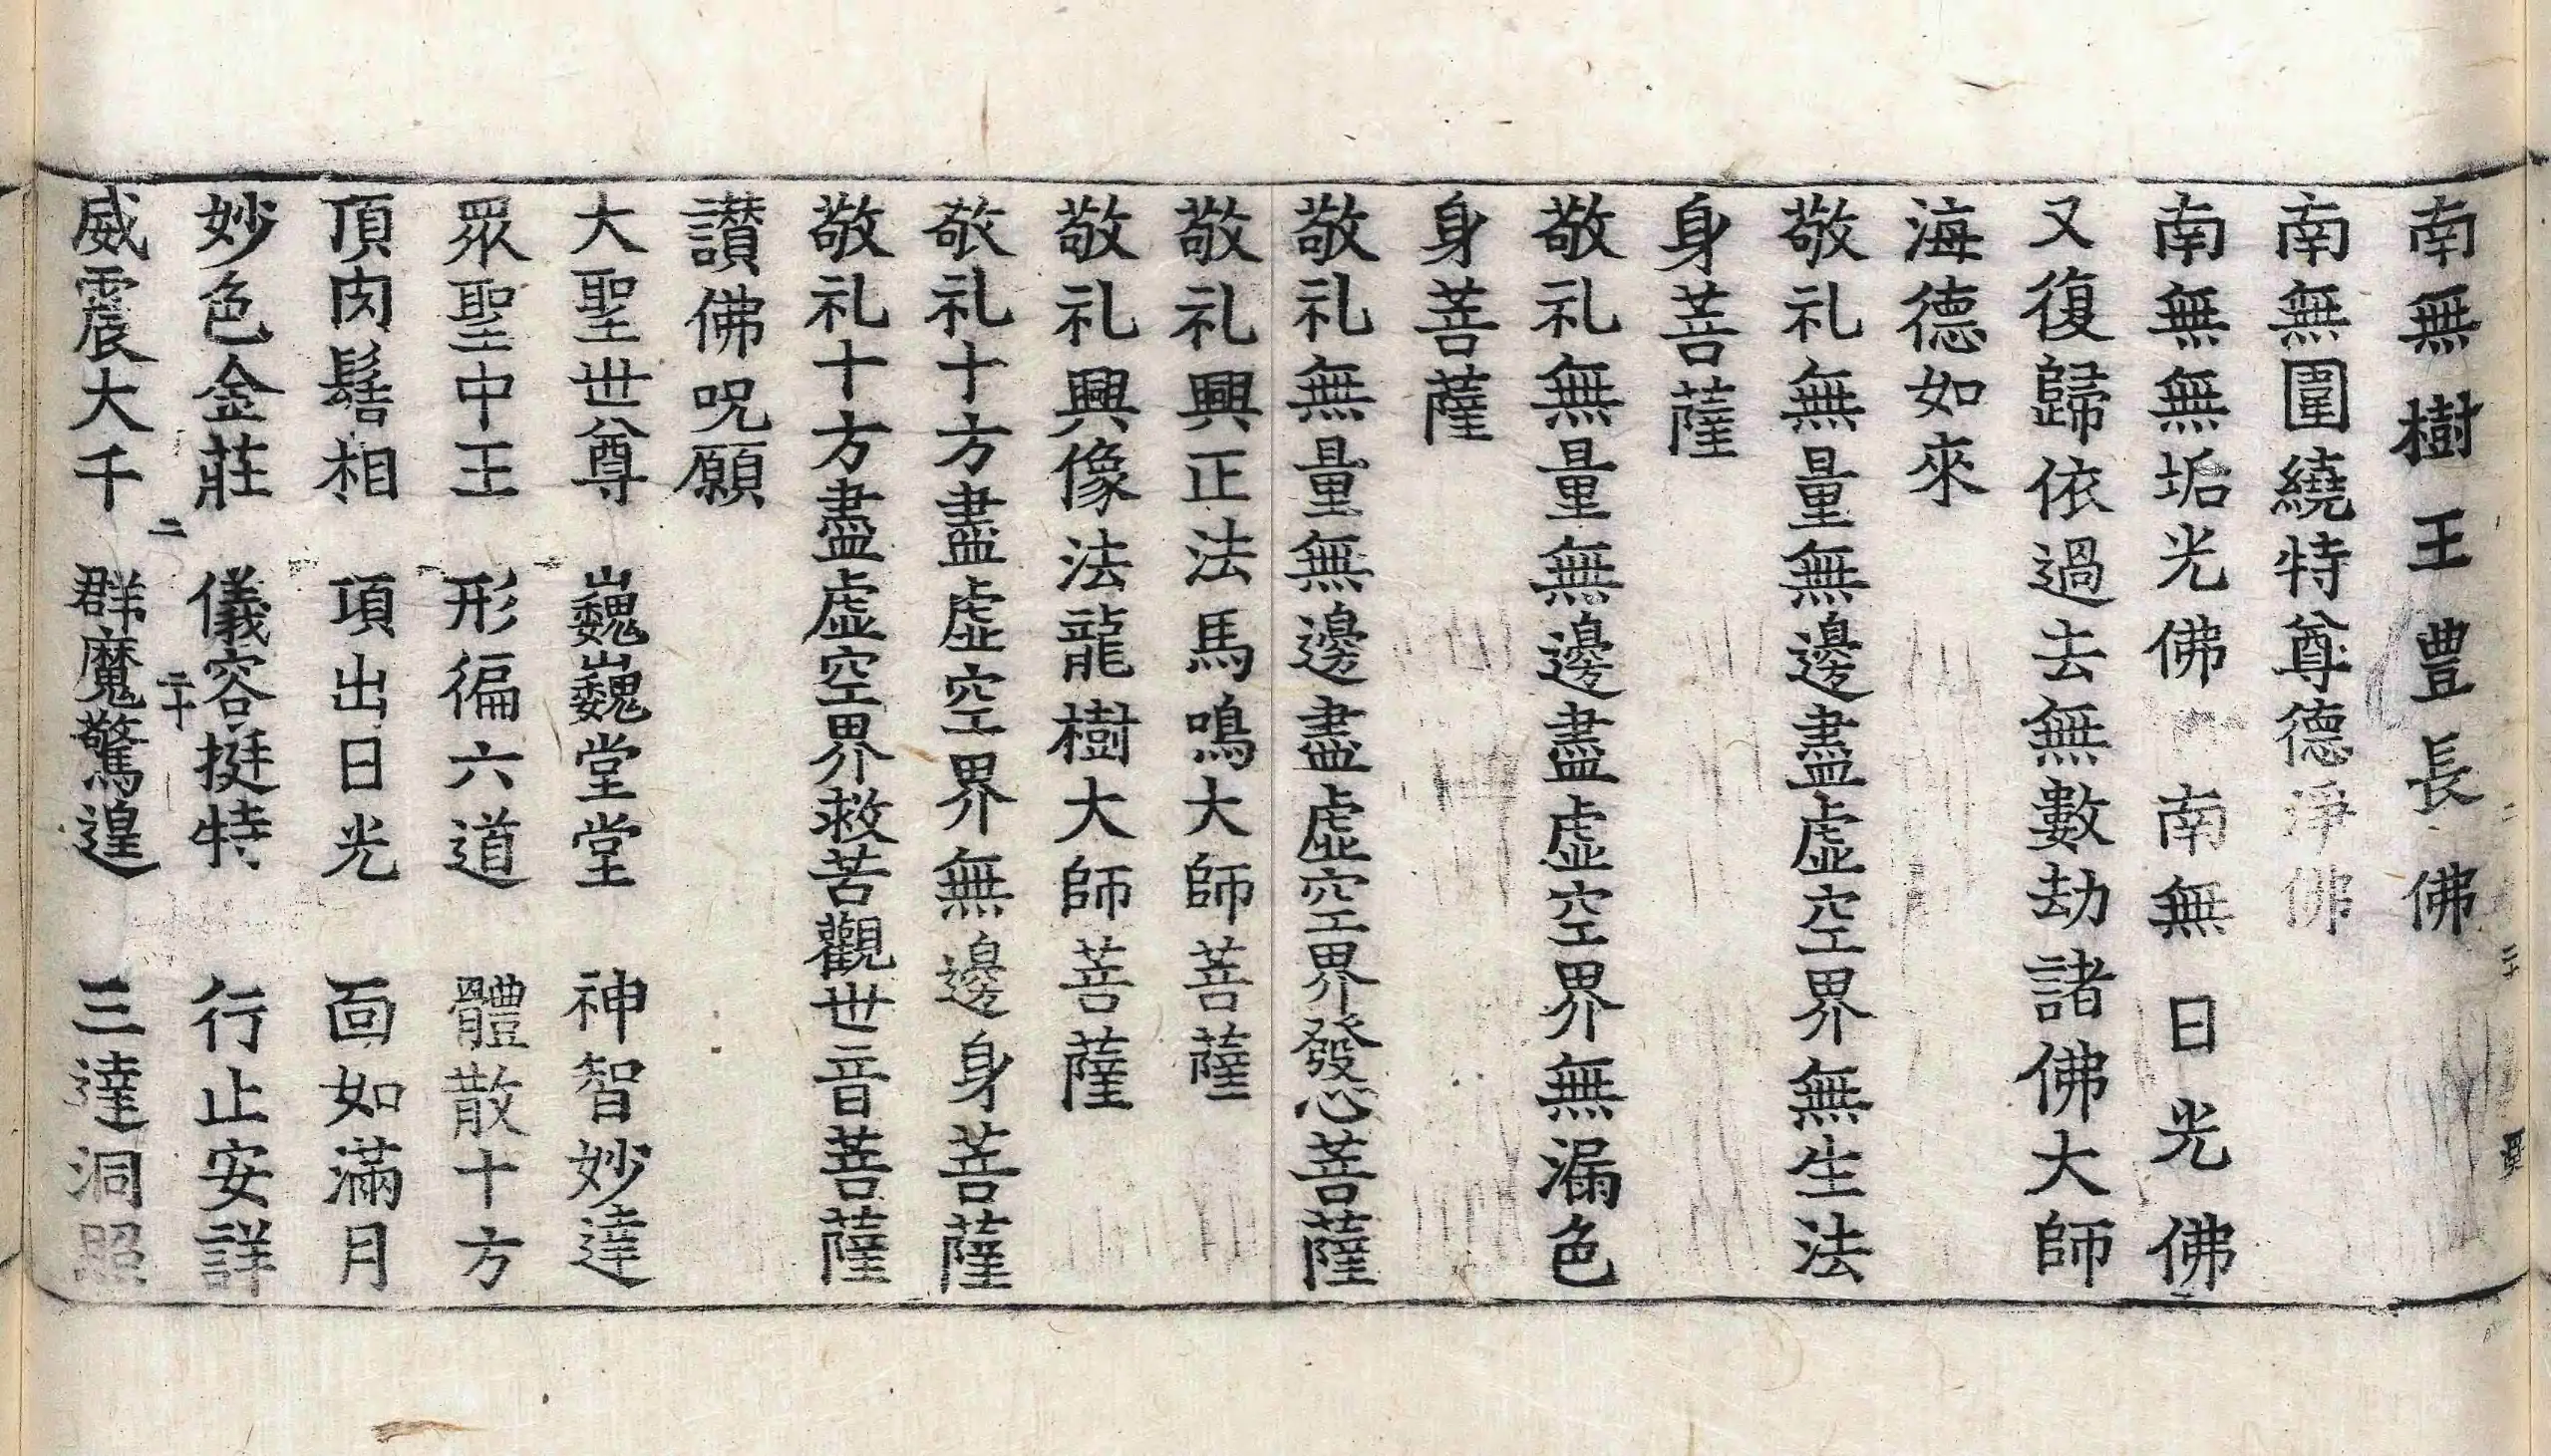 南無樹王豊長佛
南無圍繞特尊德淨佛
南無無垢光佛　南無日光佛
又復歸依過去無數劫諸佛大師
海德如來
敬礼無量無邊盡虛空界無生法
身菩薩
敬礼無量無邊盡虛空界無漏色
身菩薩
敬礼無量無邊盡虛空界發心菩薩
敬礼興正法馬鳴大師菩薩
敬礼興像法龍樹大師菩薩
敬礼十方盡虛空界無邊身菩薩
敬礼十方盡虛空界救苦觀世音菩薩
讚佛呪願
大聖世尊　巍巍堂堂　神智妙達
眾聖中王　形徧六道　體散十方
頂肉髻相　項出日光　面如滿月
妙色金莊　儀容挺特　行止安詳
二　二十
威震大千　群魔驚遑　三達洞照